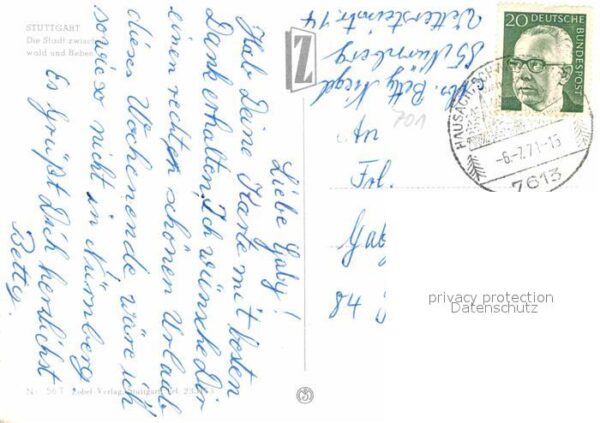 STUTTGART
Die Stadt zwischen
wald und Reben
Liebe Gaby!
Hab Deine Karte mit besten
Dank erhalten. Ich wünsche Dir
einen rechten schönen Urlaub
dieses Wochenende wäre ich
sowieso nicht in Nürnberg
Es Grüßt Dich herzlichst
Betty.
Nr. 567 Zobel-Verlag, Stuttgart
Z
Betty
85 Nürnberg
14
201
20 DEUTSCHE
BUNDESPOST
HAUSACH
-6.-7.71-15
7613
Frl.
84
privacy protection
Datenschutz